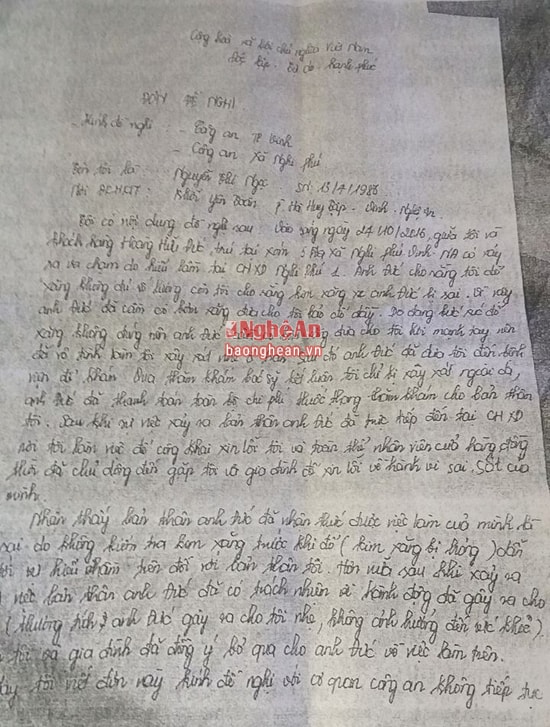 Cộng hoà xã hội chủ nghĩa Việt Nam
Độc lập - Tự do - hạnh phúc
ĐƠN ĐỀ NGHỊ
- Kính đề nghị - Công an TP Vinh
- Công an xã Nghi phú
Tên tôi là: Nguyễn Thị Ngọc SN: 13/4/1986
Nơi ĐCHKTT: Khối yên Toàn P Hà Huy Tập - Vinh - Nghệ An
Tôi có nội dung đề nghị sau: Vào sáng ngày 24/10/2016, giữa tôi và
khách hàng Hoàng Hữu Đức, trú tại xóm xã Nghi phú - Vinh - NA có xảy
ra va chạm do hiểu lầm tại CHXD Nghi Phú 1. Anh Đức cho rằng tôi đổ
xăng không đủ số lượng còn tôi cho rằng kim xăng xe anh Đức bị sai. Vì vậy
anh Đức đã cầm vòi bơm xăng đưa cho tôi bảo đổ đầy. Do đang bực tức đổ
xăng không đúng nên anh Đức đưa cho tôi khi mạnh tay nên
đã vô tình làm tôi xây xát anh Đức đã đưa tôi đến bệnh
viện để khám. Qua thăm khám bác sỹ kết luận tôi chỉ bị xây xát ngoài da,
anh Đức đã thanh toán toàn bộ chi phí thuốc thang thăm khám cho bản thân
tôi. Sau khi sự việc xảy ra bản thân anh Đức đã trực tiếp đến tại CHXD
nơi tôi làm việc để công khai xin lỗi tôi và toàn thể nhân viên cửa hàng đồng
thời đã chủ động đến gặp tôi và gia đình để xin lỗi về hành vi sai sót của
mình.
Nhận thấy bản thân anh Đức đã nhận thức được việc làm của mình là
sai do không kiểm tra kim xăng trước khi đổ (kim xăng bị hỏng) dẫn
tới sự hiểu nhầm trên đối với bản thân tôi. Hơn nữa sau khi xảy ra
việc bản thân anh Đức đã có trách nhiệm về hành động đã gây ra cho
(thương tích anh Đức gây ra cho tôi nhẹ, không ảnh hưởng đến sức khoẻ).
tôi và gia đình đã đồng ý bỏ qua cho anh Đức về việc làm trên.
tôi viết đơn này kính đề nghị với cơ quan công an không tiếp tục
Nghệ An
baonghean.vn